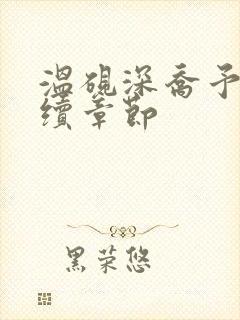 溫硯深喬予
續章節
黑荣悠